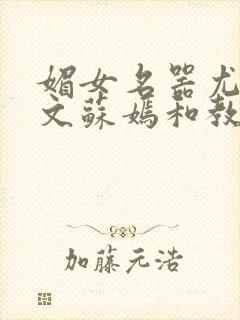 媚女名器尤
文蘇媽和教
加藤元浩